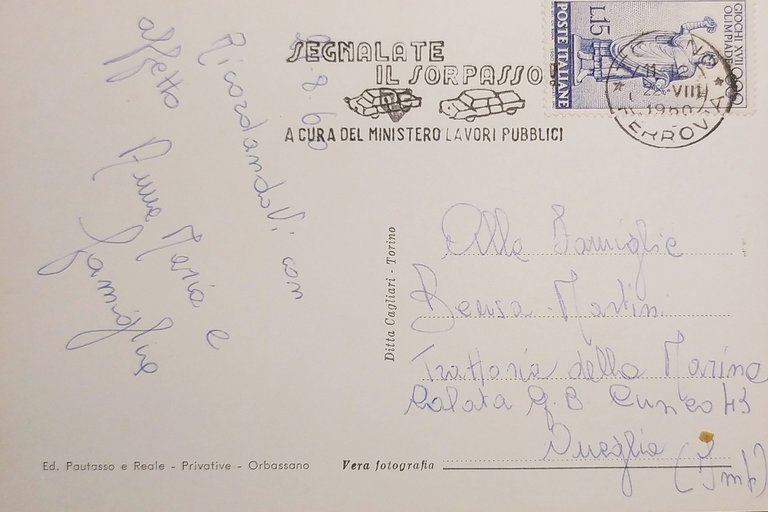 SEGNALATE
IL SORPASSO!
A CURA DEL MINISTERO LAVORI PUBBLICI
GIOCHI XVII
OLIMPIADE
L.15
POSTE ITALIANE
TORINO
22-VIII
1960
FERROVIA
8.60
RicordandoVi con
affetto
Anna Maria e
famiglia
Ditta Cagliari - Torino
Alle Famiglie
Bensa-Martini
Trattoria della Marina
Calata G.B. Cuneo 43
Oneglia (Imp)
Ed. Pautasso e Reale - Privative - Orbassano
Vera fotografia